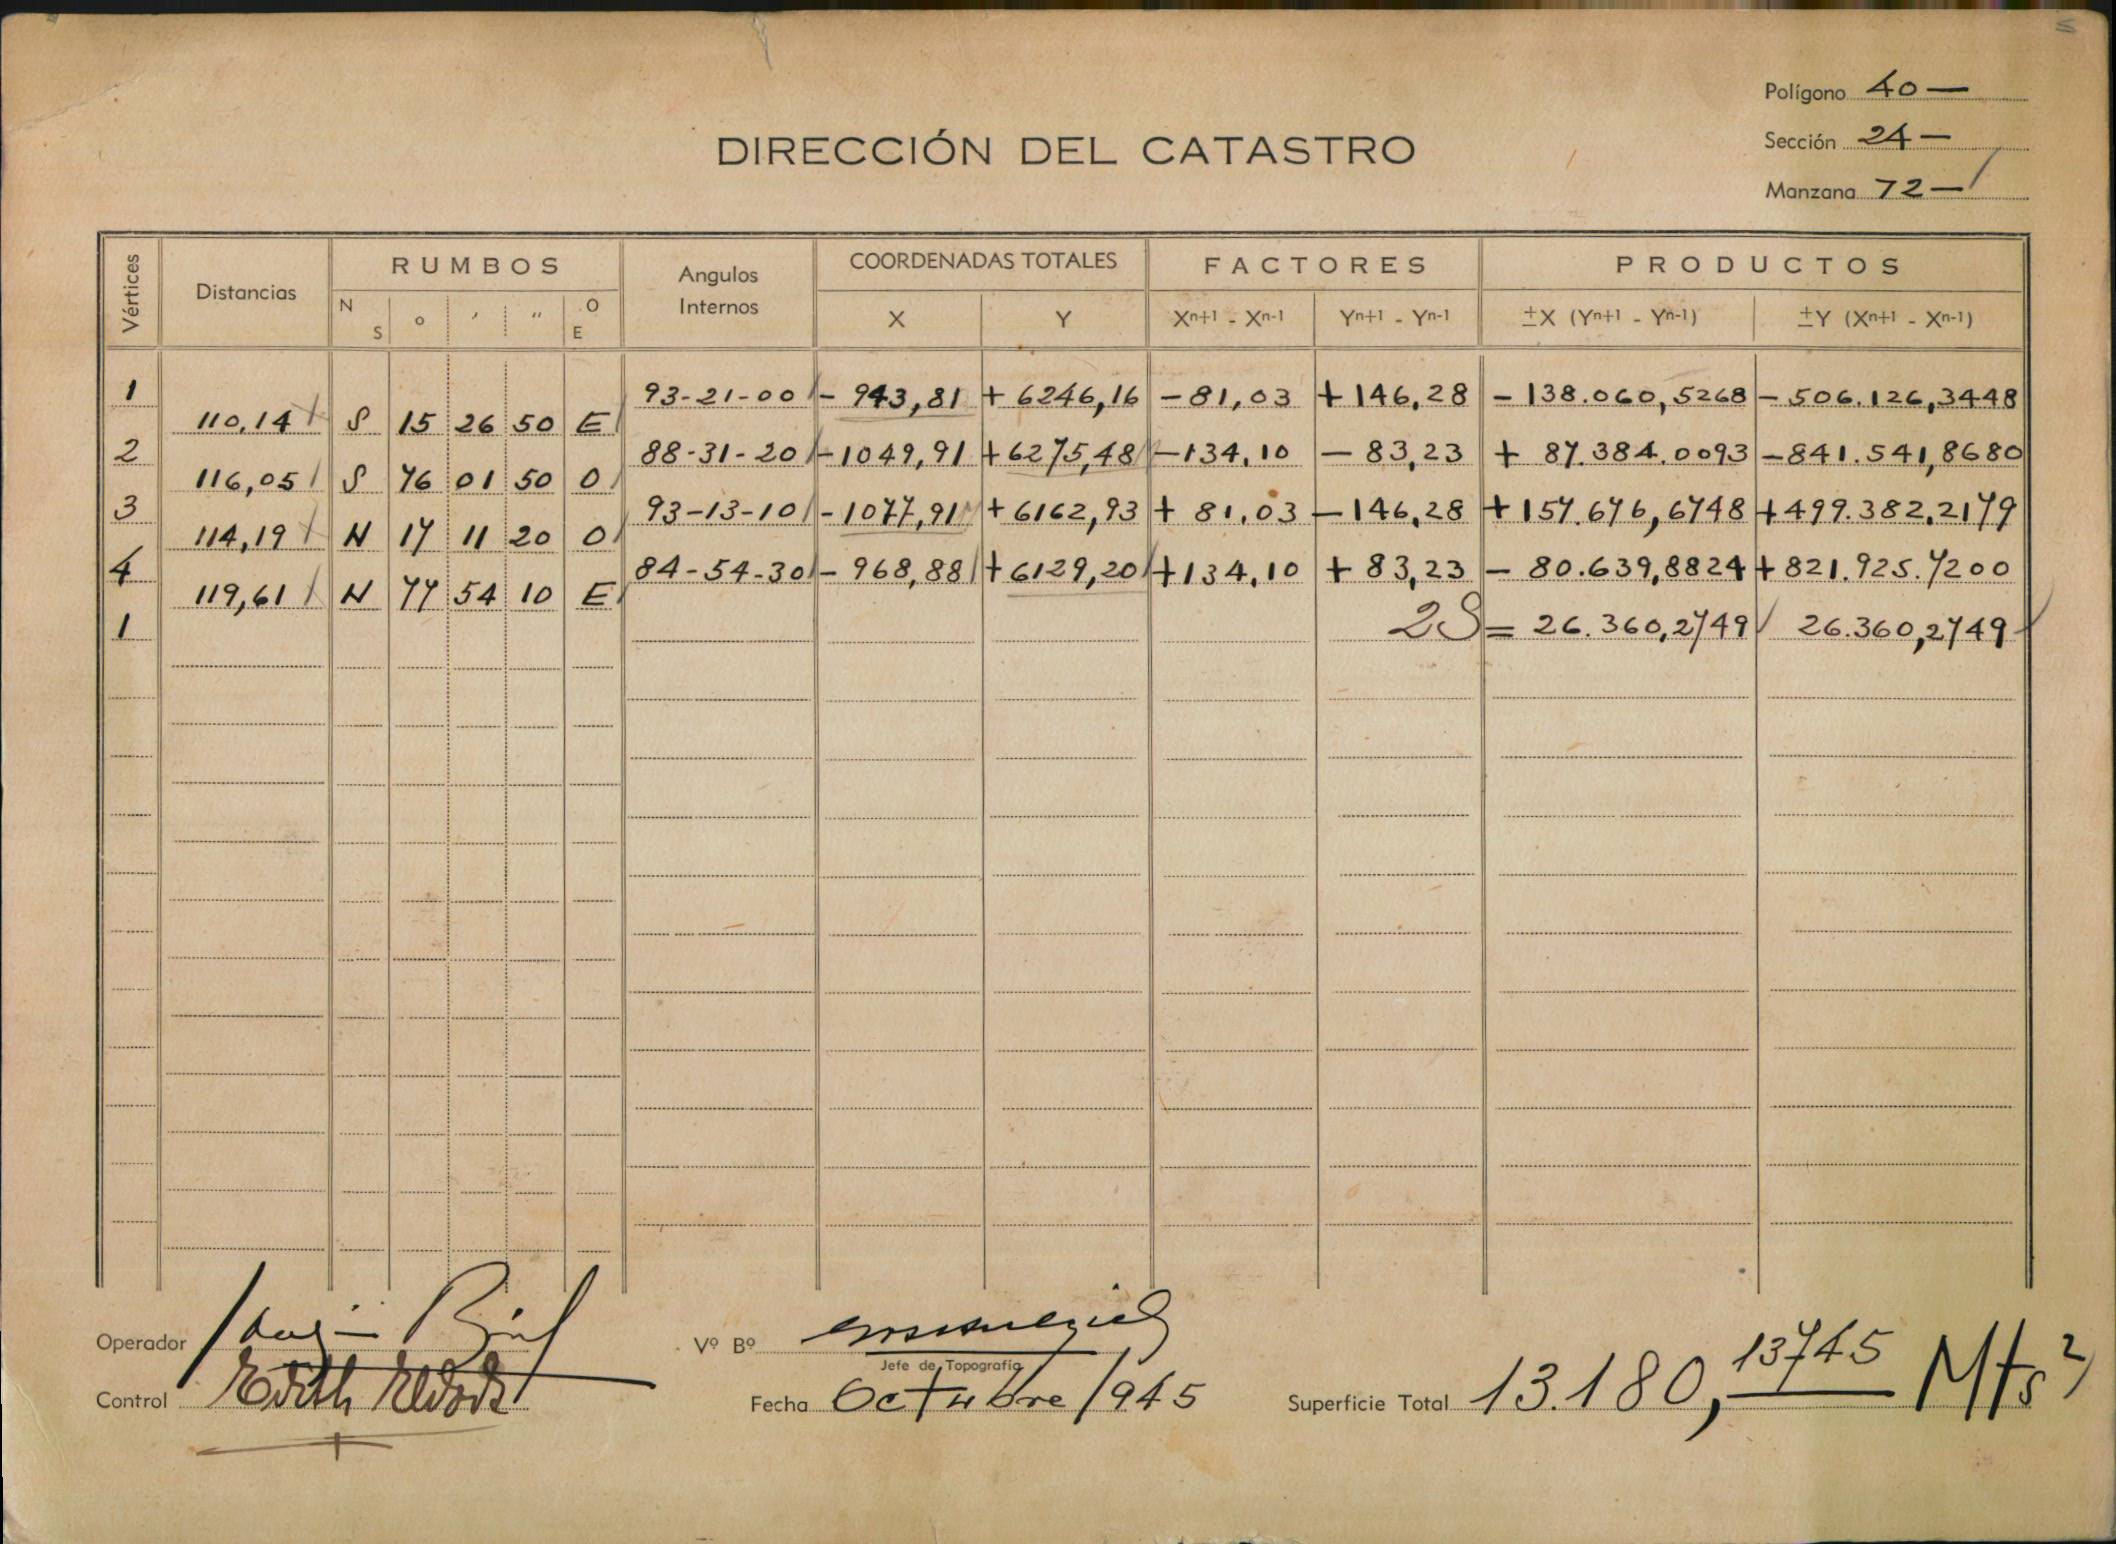 Polígono 40 —
DIRECCIÓN DEL CATASTRO
Sección 24 —
Manzana 72 —
Vértices Distancias RUMBOS Angulos Internos COORDENADAS TOTALES FACTORES PRODUCTOS
N S ° ′ ″ O E X Y Xn+1 - Xn-1 Yn+1 - Yn-1 ±X (Yn+1 - Yn-1) ±Y (Xn+1 - Xn-1)
1 93-21-00 - 943,81 + 6246,16 - 81,03 + 146,28 - 138.060,5268 - 506.126,3448
110,14 S 15 26 50 E
2 88-31-20 - 1049,91 + 6275,48 - 134,10 - 83,23 + 87.384.0093 - 841.541,8680
116,05 S 76 01 50 O
3 93-13-10 - 1077,91 + 6162,93 + 81,03 - 146,28 + 157.676,6748 + 499.382,2179
114,19 N 17 11 20 O
4 84-54-30 - 968,88 + 6129,20 + 134,10 + 83,23 - 80.639,8824 + 821.925.7200
119,61 N 77 54 10 E
1 2S = 26.360,2749 26.360,2749
Operador Vº Bº
Jefe de Topografía
Control Edith Fecha Octubre/945 Superficie Total 13.180,13745 Mts2